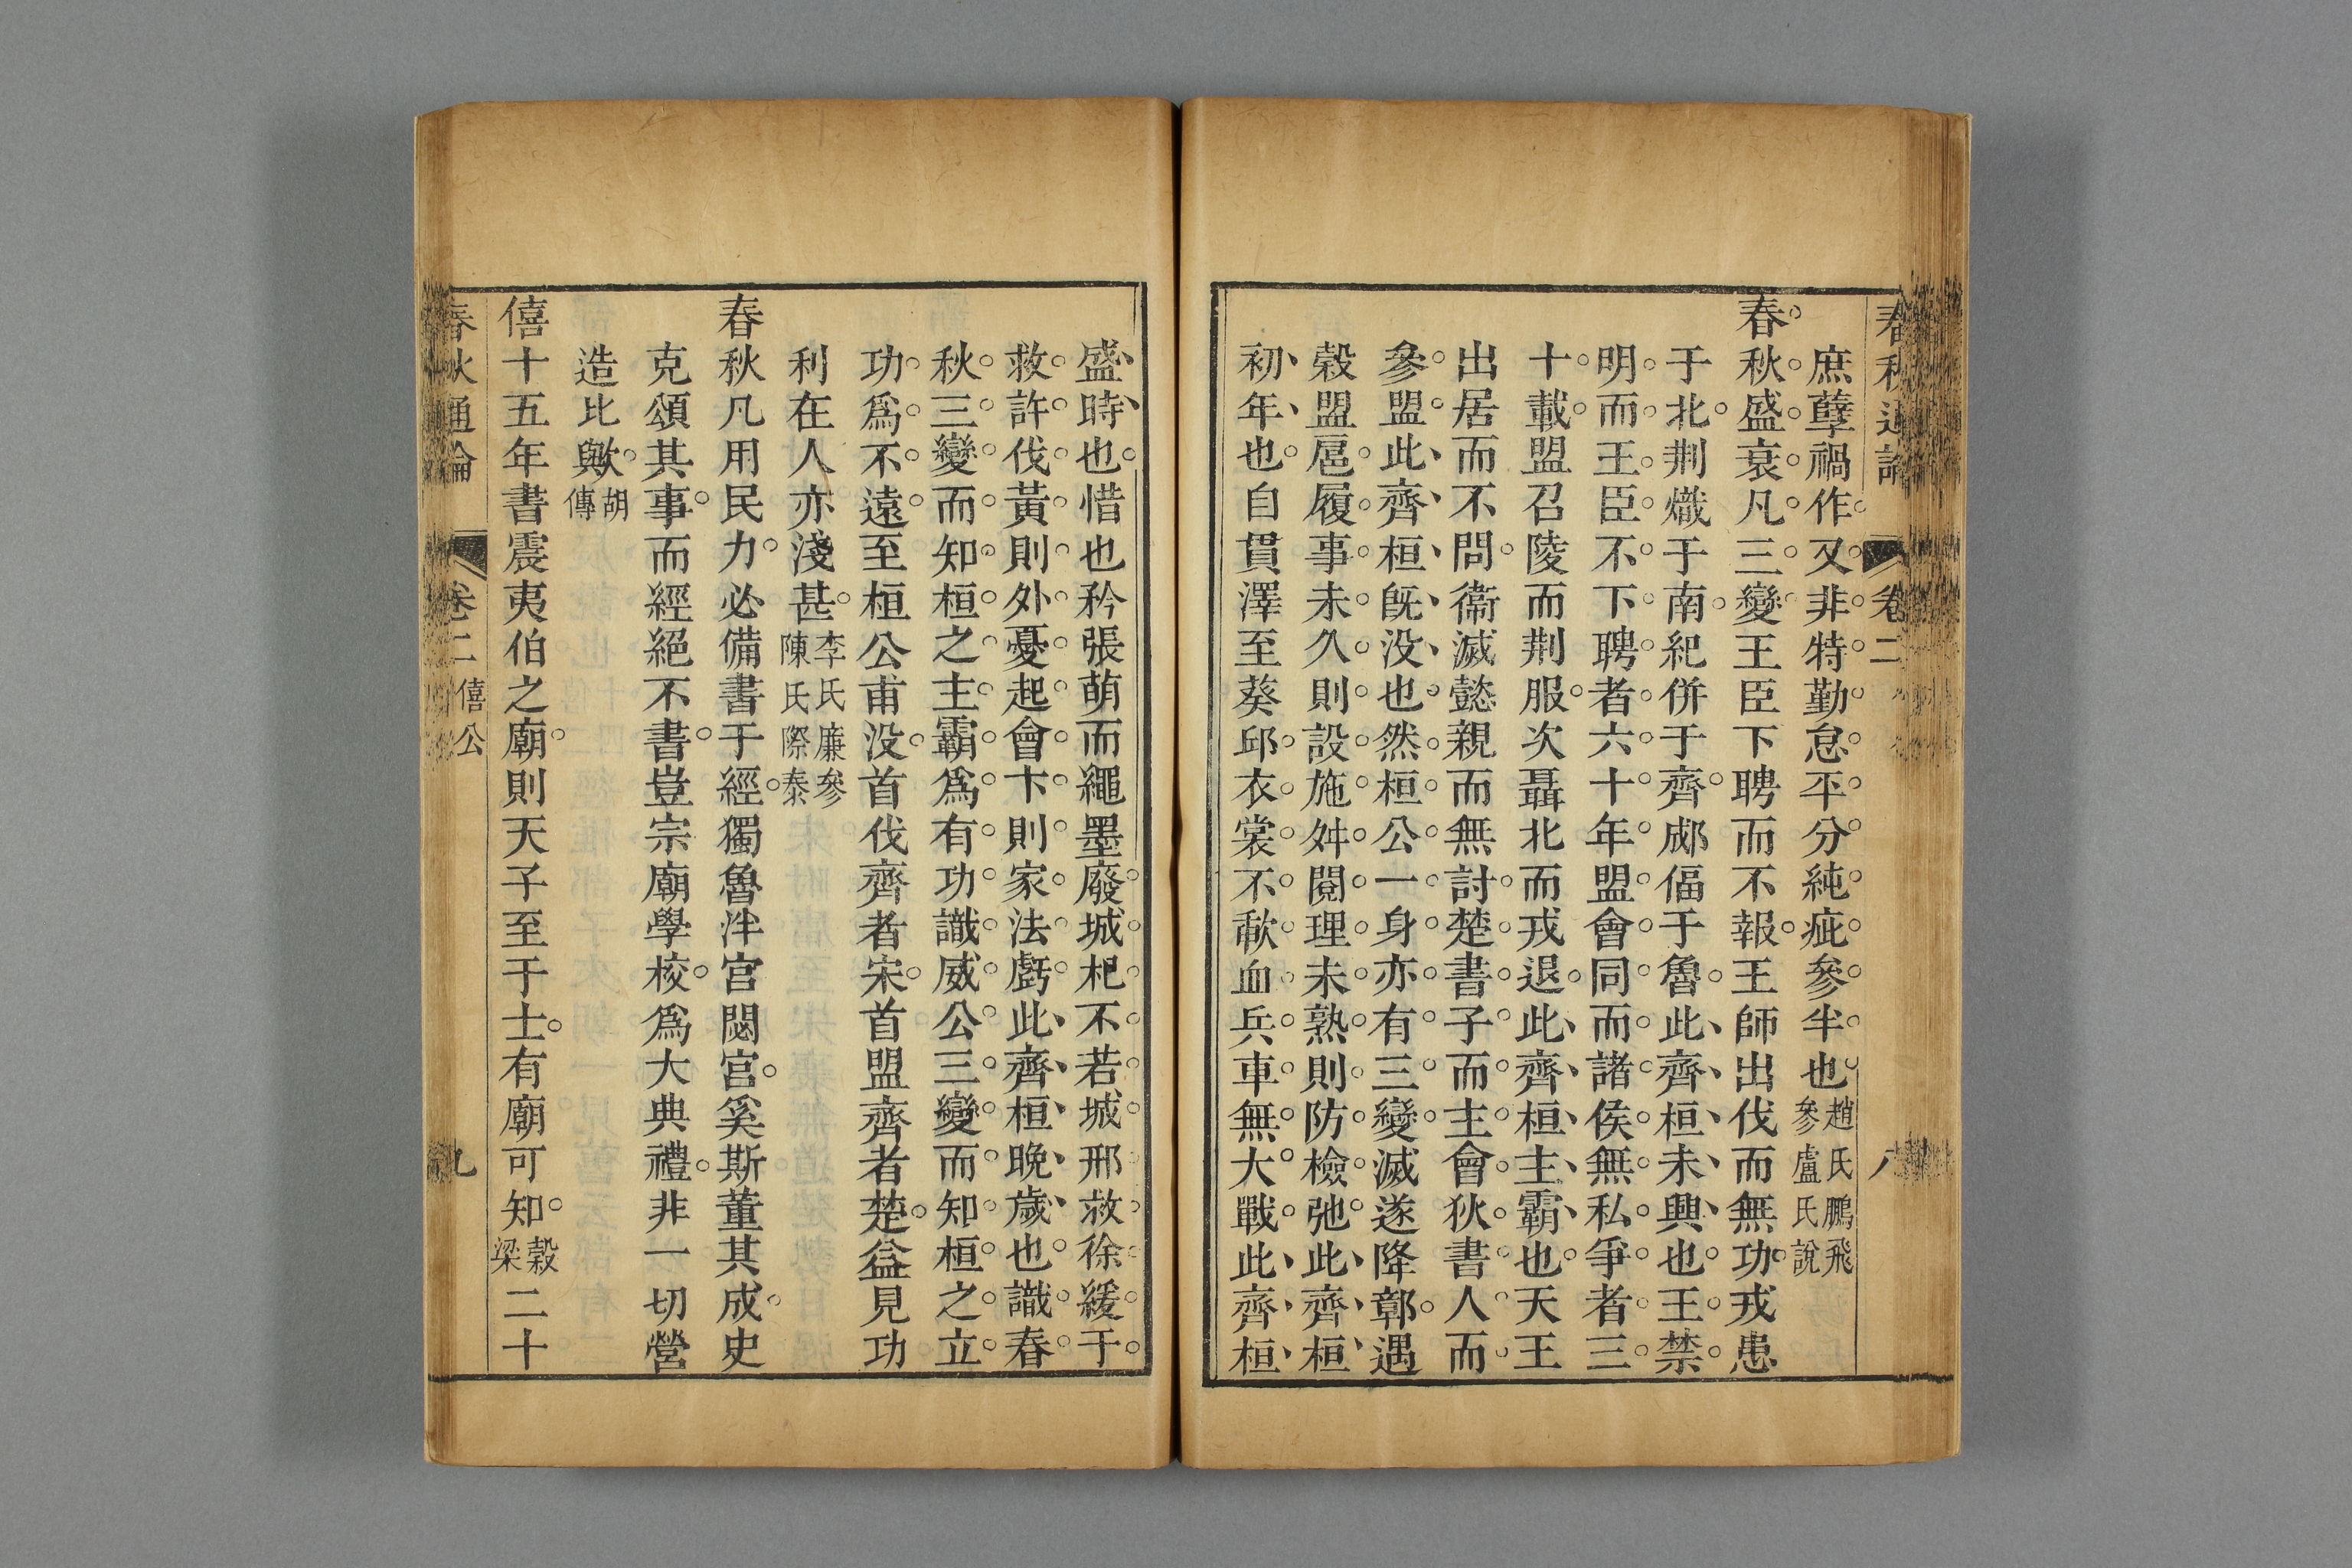 春秋通論 卷二 八
庶孽禍作又非特勤怠平分純疵參半也趙氏鵬飛參盧氏說
春秋盛衰凡三變王臣下聘而不報王師出伐而無功戎患
于北荆熾于南紀併于齊郕偪于魯此齊桓未興也王禁
明而王臣不下聘者六十年盟會同而諸侯無私爭者三
十載盟召陵而荆服次聶北而戎退此齊桓主霸也天王
出居而不問衞滅懿親而無討楚書子而主會狄書人而
參盟此齊桓旣没也然桓公一身亦有三變滅遂降鄣遇
穀盟扈履事未久則設施舛閱理未熟則防檢弛此齊桓
初年也自貫澤至葵邱衣裳不歃血兵車無大戰此齊桓
盛時也惜也矜張萌而繩墨廢城杞不若城邢救徐緩于
救許伐黃則外憂起會卞則家法虧此齊桓晚歲也識春
秋三變而知桓之主霸爲有功識威公三變而知桓之立
功爲不遠至桓公甫没首伐齊者宋首盟齊者楚益見功
利在人亦淺甚李氏廉參陳氏際泰
春秋凡用民力必備書于經獨魯泮宮閟宮奚斯董其成史
克頌其事而經絕不書豈宗廟學校爲大典禮非一切營
造比歟胡傳
僖十五年書震夷伯之廟則天子至于士有廟可知穀梁二十
春秋通論 卷二 僖公 九